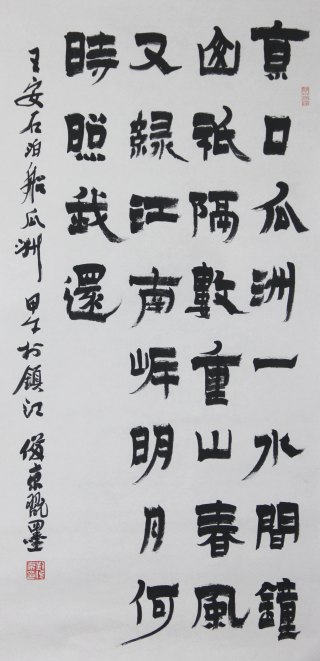 京口瓜洲一水間鐘
山祇隔數重山春風
又綠江南岸明月何
時照我還
王安石泊船瓜洲 於鎮江 東 墨